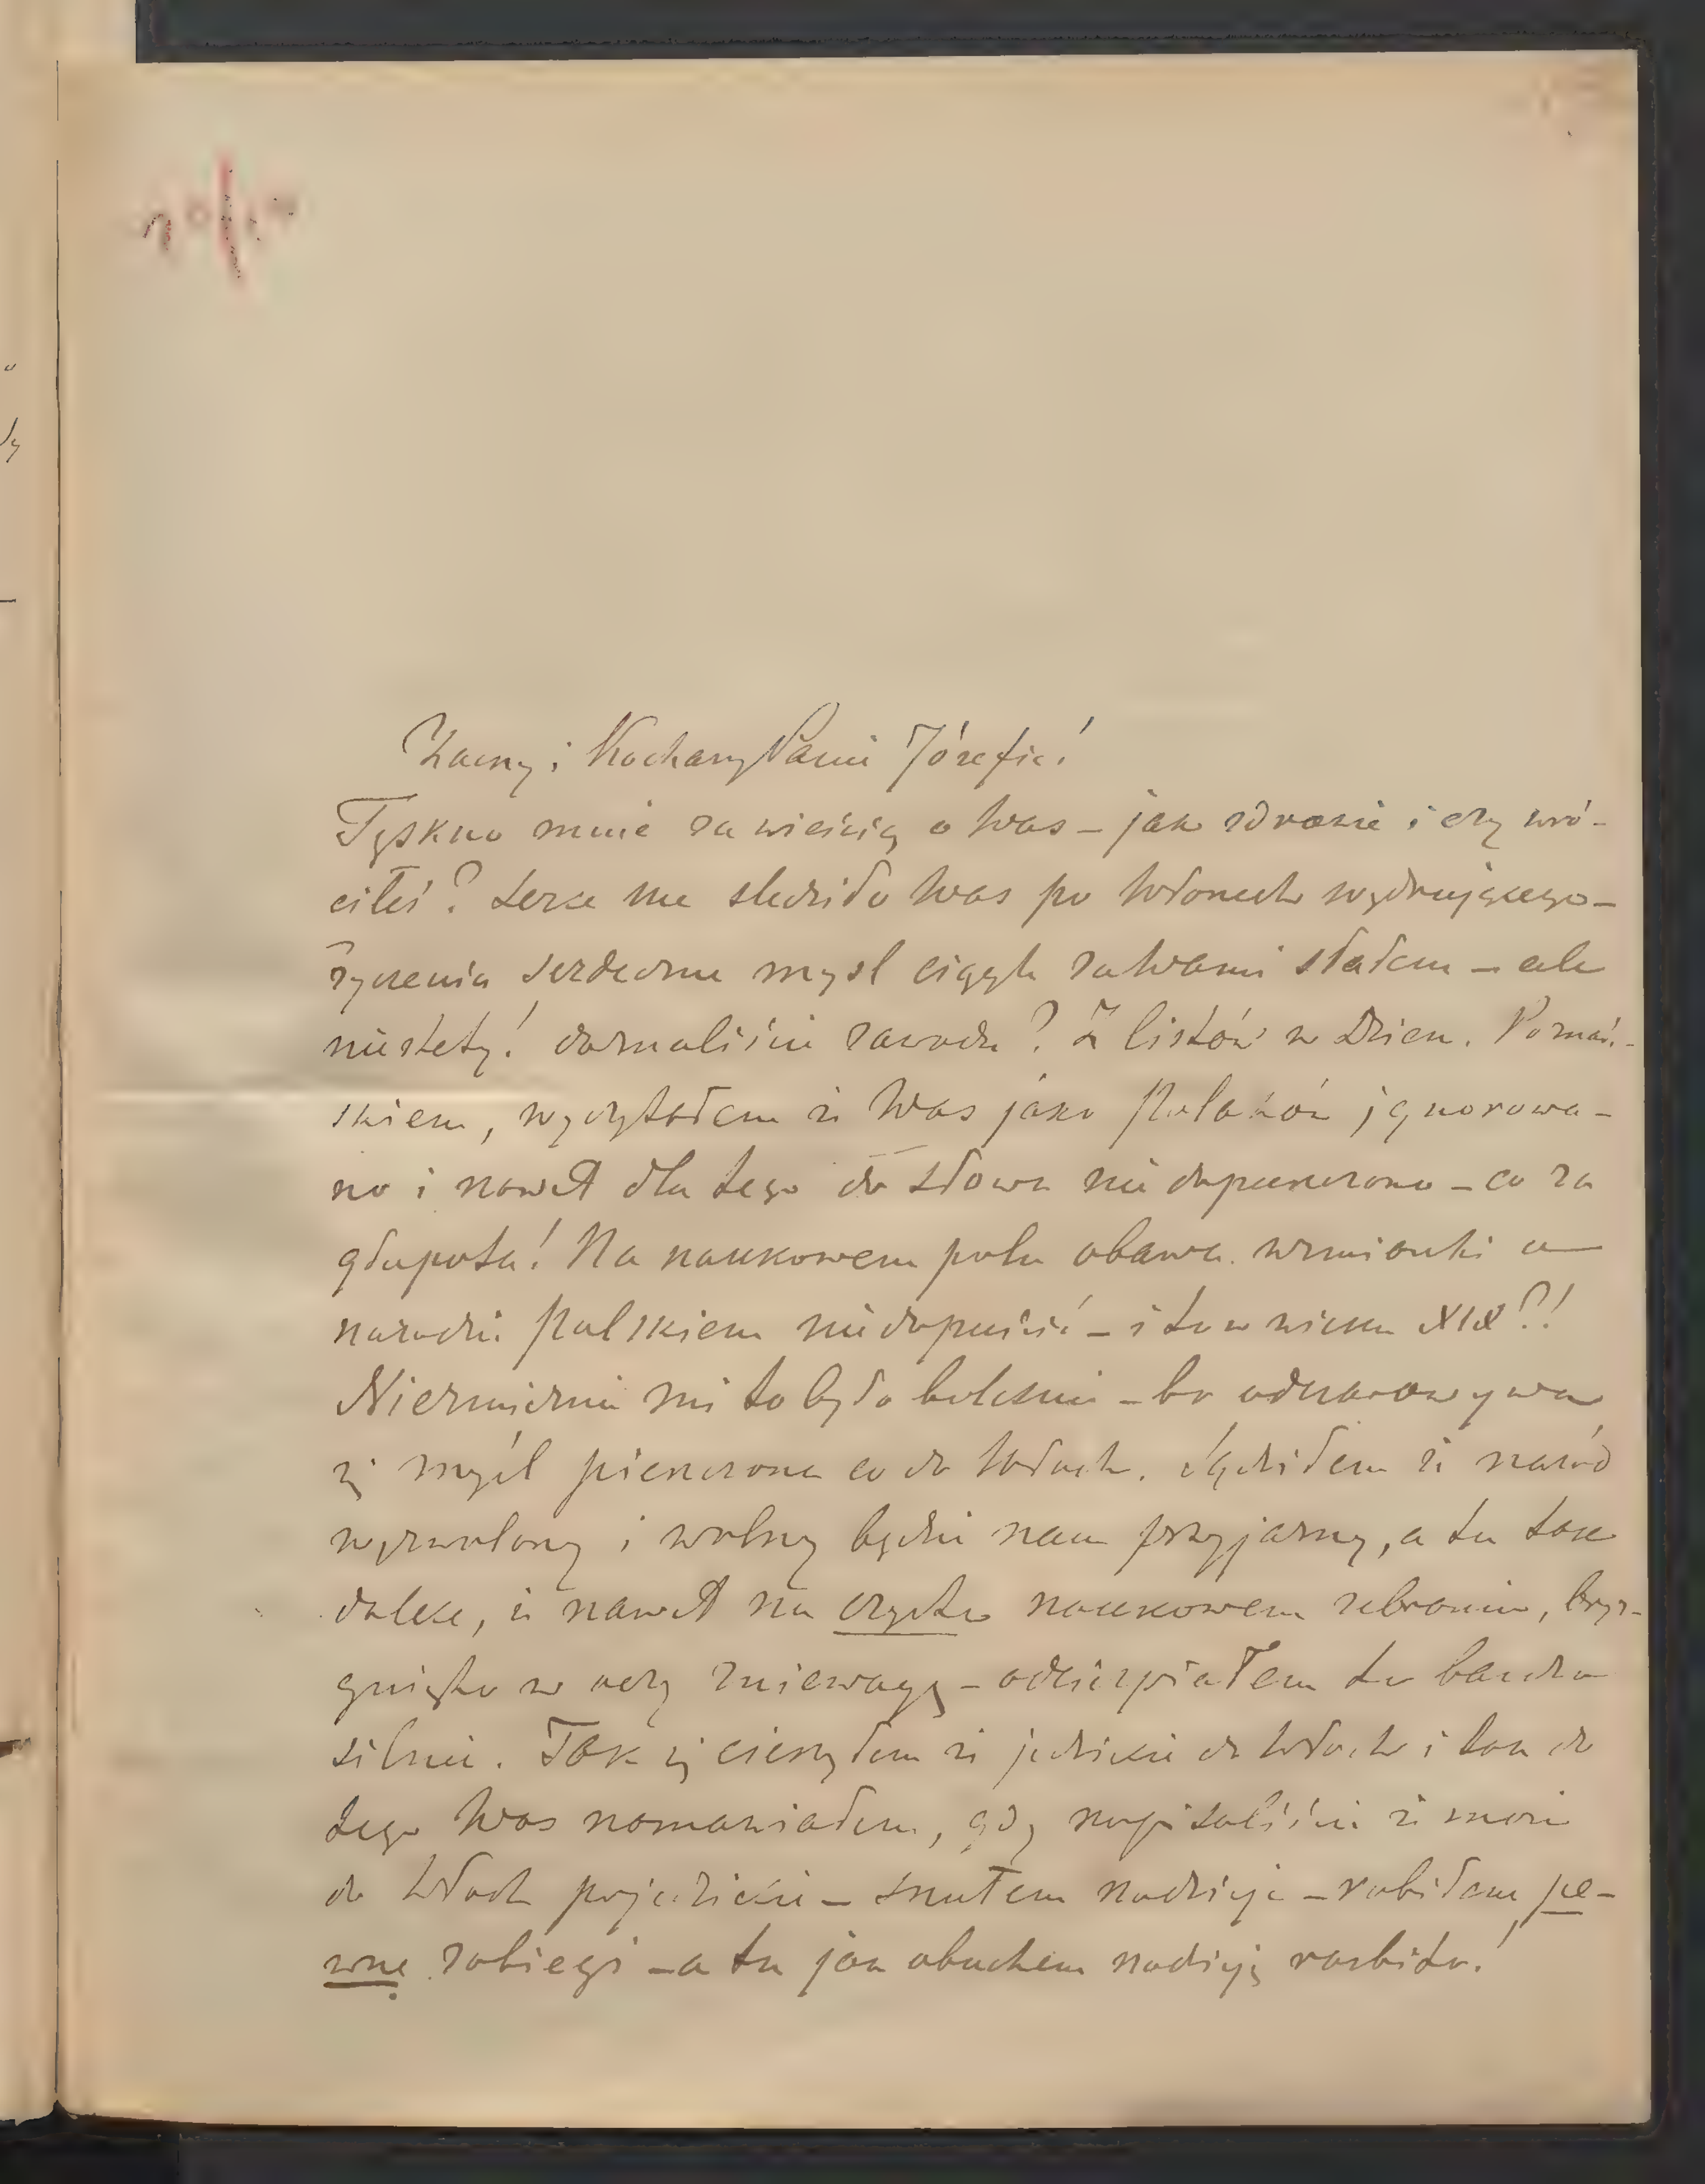 Zacny i Kochany Panie Józefie!
Tęskno mnie za wieścią o Was – jak zdrowie i czy wró-
ciłeś? Serce me śledziło Was po Włoszech wędrującego –
życzenia serdeczne myśl ciągle za Wami słałem – ale
niestety! doznaliście zawodu? Z listów w Dzien. Poznań.-
skiem, wyczytałem iż Was jako Polaków ignorowa-
no i nawet dla tego do słowa nie dopuszczono – co za
głupota! Na naukowem polu obawa wzmianki o
narodzie Polskiem nie dopuścić – i to w wieku XIX?!
Niezmiernie mi to było boleśnie – bo
się myśl pieszczona co do Włoch. Sądziłem iż naród
wyzwolony i wolny będzie nam przyjazny, a tu tak
daleko, iż nawet na czysto naukowem zebraniu, bryz-
gnięto w oczy zniewagę – odcierpiałem to bardzo
silnie. Tak się cieszyłem iż jedziecie do Włoch i tak do
tego Was namawiałem, gdy napisaliście iż może
do Włoch pojedziecie – snułem nadzieje – robiłem pe-
wne zabiegi – a tu jak obuchem nadzieję rozbito!